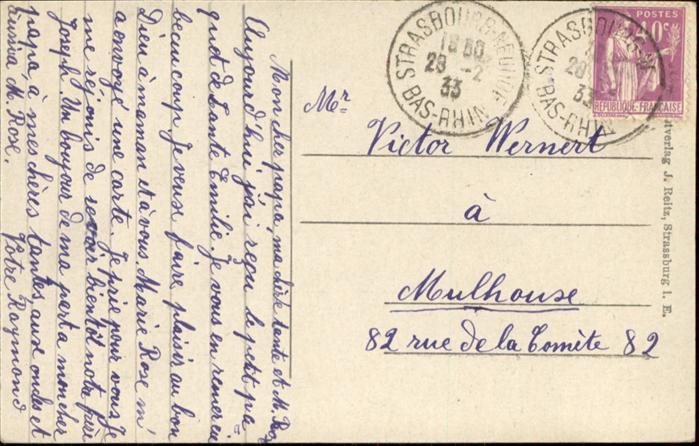 Mon cher papa, ma chère tante et M. Roz
Aujourd'hui j'ai reçu le petit pa-
quet de tante Emilie. Je vous en remercie
beaucoup. Je veux faire plaisir au bon
Dieu à maman et à vous Marie Rose m'
a envoyé une carte. Je prie pour vous Je
me rejouis de revoir bientôt notre frère
Joseph. Un bonjour de ma part a mon cher
papa, à mes chères tantes aux oncles et
cousine M. Rose.
Votre Raymond
STRASBOURG-NEUDORF
18 30
28 -2
33
BAS-RHIN
STRASBOURG
28
33
BAS-RHIN
POSTES
REPUBLIQUE-FRANÇAISE
Mr
Victor Wernert
à
Mulhouse
82 rue de la Comète 82
tverlag J. Reitz, Strassburg i. E.